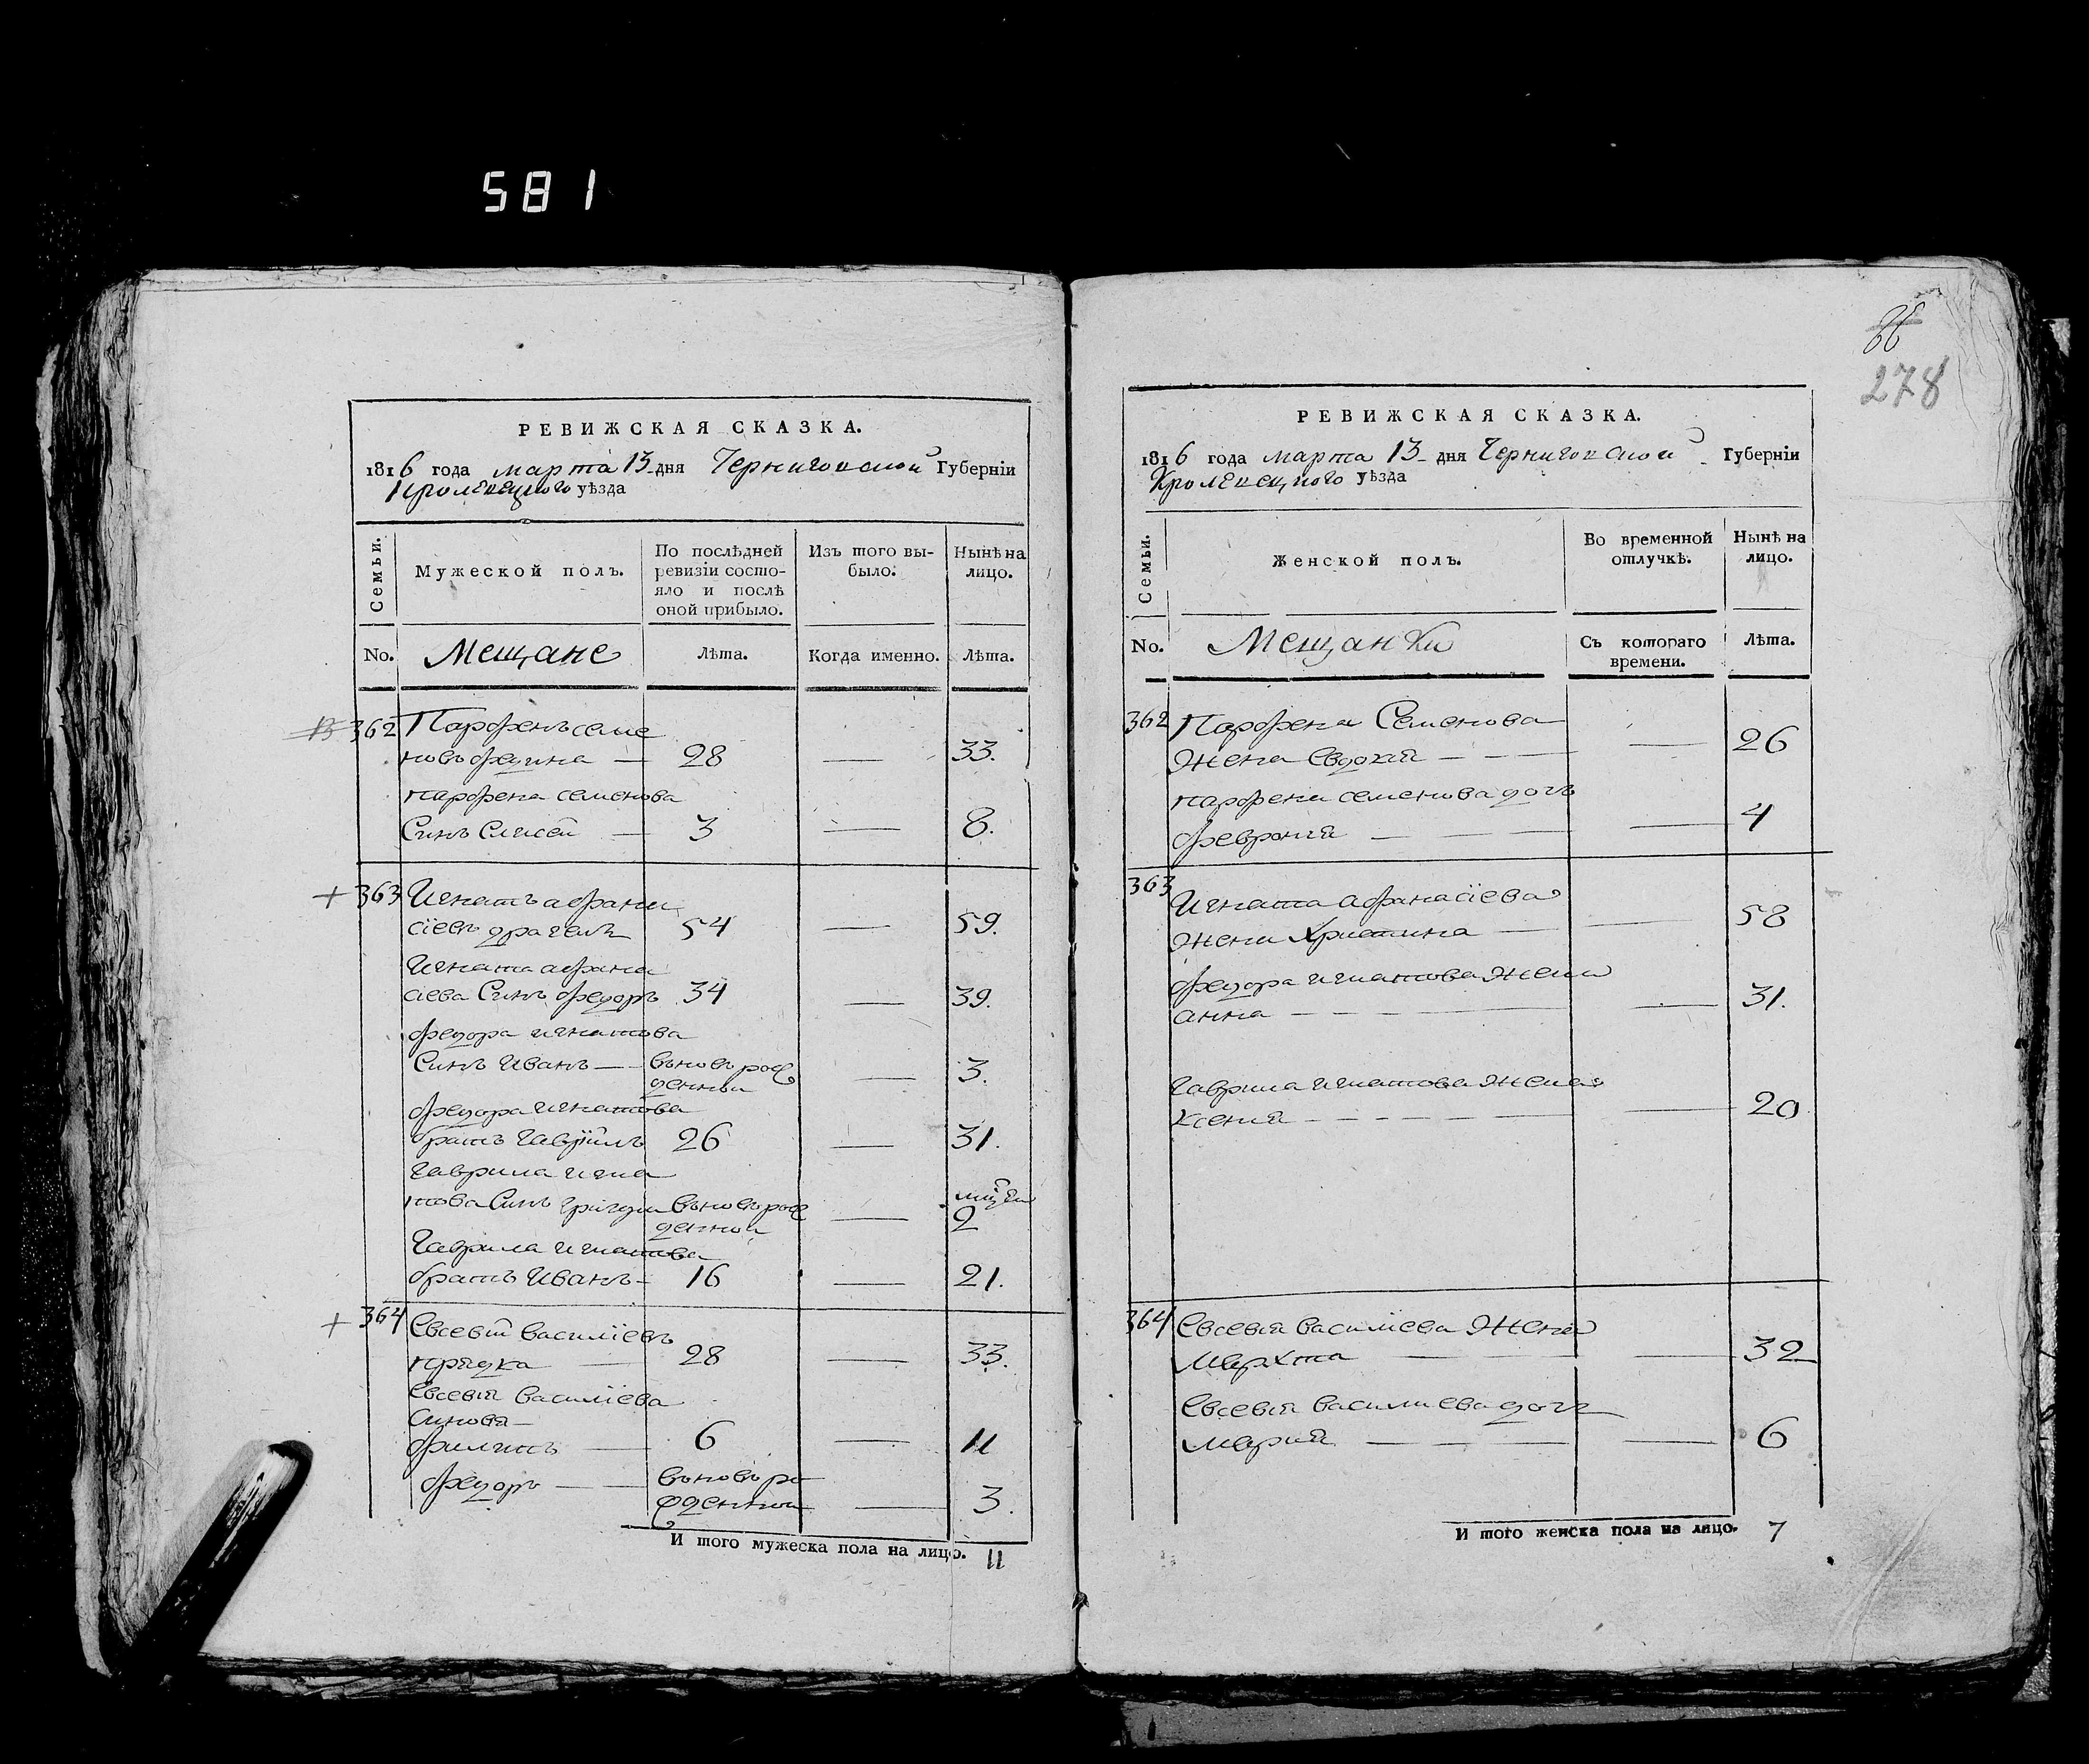 581
278
РЕВИЖСКАЯ СКАЗКА.
1816 года марта 13 дня Черниговской Губерніи
Кролевецкого уѣзда
Семьи.
Мужеской полъ.
По послѣдней ревизіи состояло и послѣ оной прибыло.
Изъ того выбыло.
Нынѣ на лицо.
No.
Мещане
Лѣта.
Когда именно.
Лѣта.
362 Парфенъ семе
новъ федина — 28 — 33.
парфена семенова
Синъ Елисей — 3 — 8.
+ 363 Игнатъ афана
сіевъ драгель 54 — 59.
Игната афана
сіева Синъ федоръ 34 — 39.
федора игнатова
Синъ Иванъ — вновь рож
денной — 3.
федора игнатова
братъ гавріилъ 26 — 31.
гаврила игна
това Синъ григори вновь рож
денной — 2
гаврила игнатова
братъ Иванъ — 16 — 21.
+ 364 Евсевій василіевъ
прядка — 28 — 33.
Евсевія василіева
Синовя —
филипъ — 6 — 11
федоръ — вновь ро
жденной — 3.
И того мужеска пола на лицо. 11
РЕВИЖСКАЯ СКАЗКА.
1816 года марта 13 дня Черниговской Губерніи
Кролевецкого уѣзда
Семьи.
Женской полъ.
Во временной отлучкѣ.
Нынѣ на лицо.
No.
Мещанки
Съ котораго времени.
Лѣта.
362 Парфена Семенова
жена Евдокія — — — 26
парфена семенова дочь
февронія — — — 4
363 Игната афанасіева
жена Христина — — 58
федора игнатова жена
анна — — — 31.
гаврила игнатова жена
Ксенія — — — 20
364 Евсевія василіева жена
Марѳта — — — 32
Евсевія василиева дочь
Марія — — — 6
И того женска пола на лицо. 7